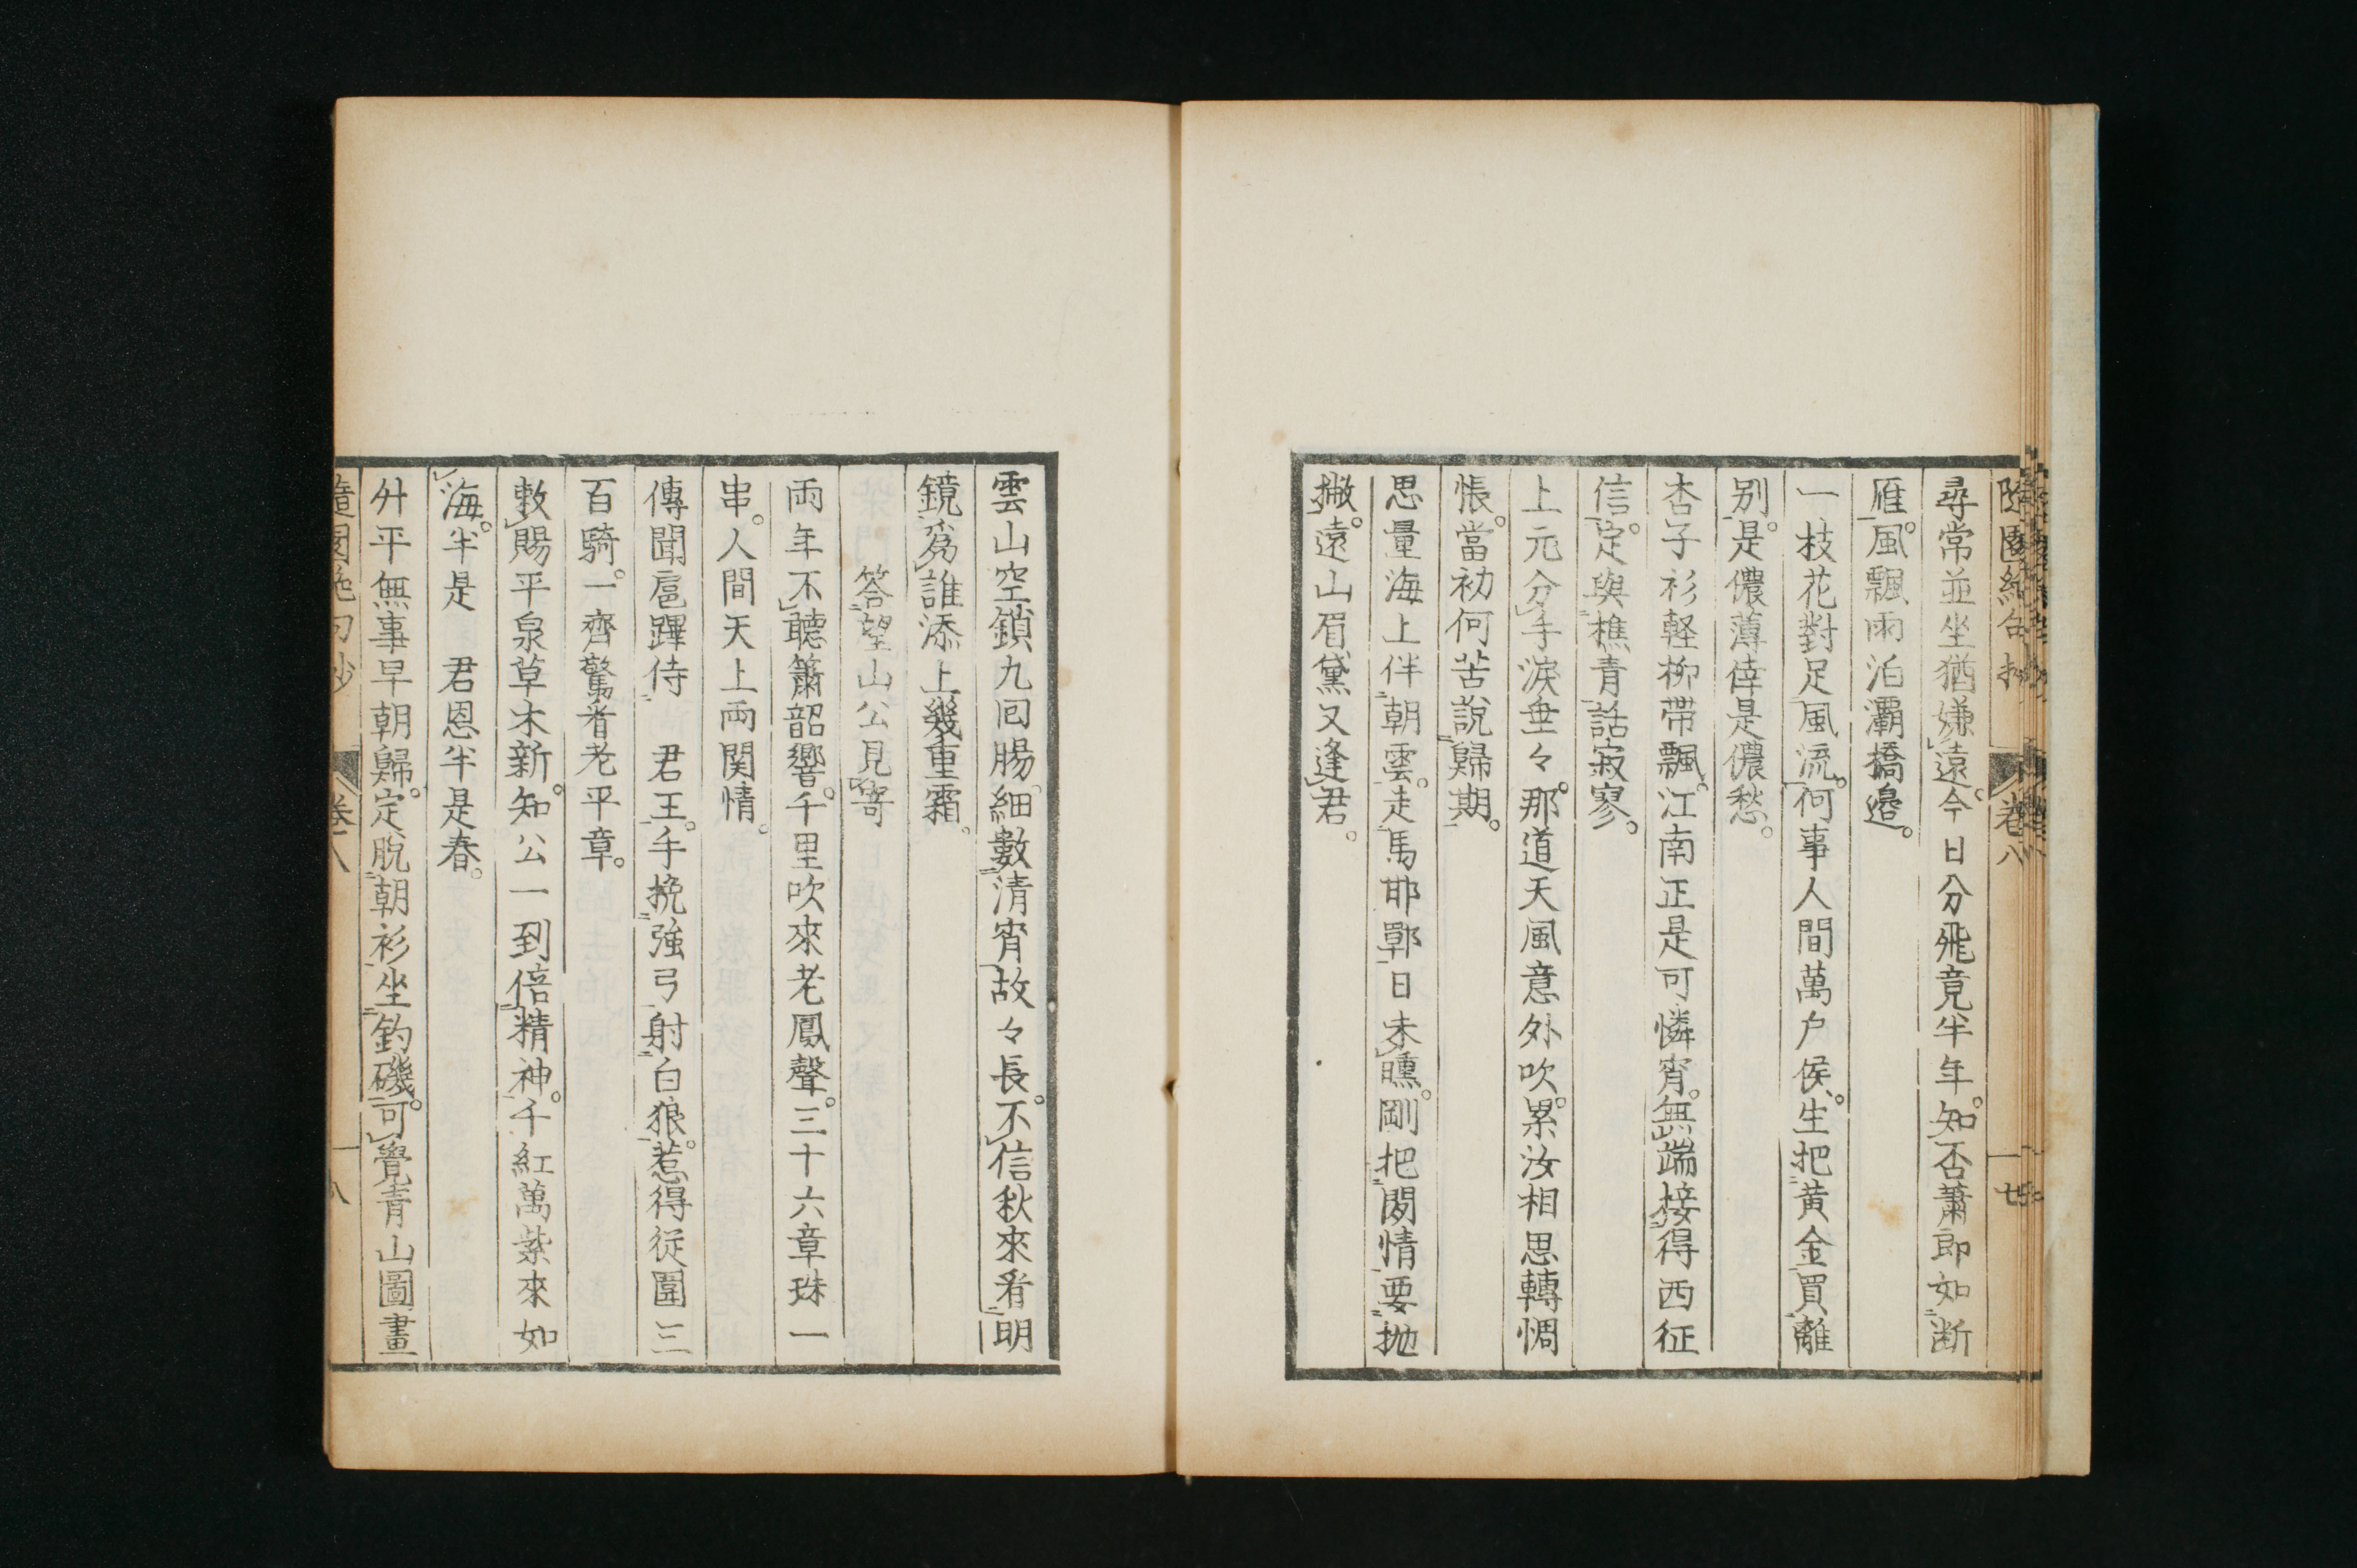 隨園絶句抄 卷八 十七
尋常並坐猶嫌遠。今日分飛竟半年。知否蕭郎如断
雁。風飄雨泊灞橋邉。
一枝花對足風流。何事人間萬户侯。生把黄金買離
别。是儂薄倖是儂愁。
杏子衫軽柳帶飄。江南正是可憐宵。無端接得西征
信。定與樵青話寂寥。
上元分手淚垂々。那道天風意外吹。累汝相思轉惆
悵。當初何苦說歸期。
思量海上伴朝雲。走馬邯鄲日未曛。剛把閑情要抛
撇。遠山眉黛又逢君。
雲山空鎖九回腸。細數清宵故々長。不信秋來看明
鏡。爲誰添上幾重霜。
答望山公見寄
兩年不聽簫韶響。千里吹來老鳳聲。三十六章珠一
串。人間天上兩関情。
傳聞扈蹕侍 君王。手挽強弓射白狼。惹得従圍三
百騎。一齊驚看老平章。
敕賜平泉草木新。知公一到倍精神。千紅萬紫來如
海。半是 君恩半是春。
升平無事早朝歸。定脫朝衫坐釣磯。可覺青山圖畫
隨園絶句抄 卷八 十八